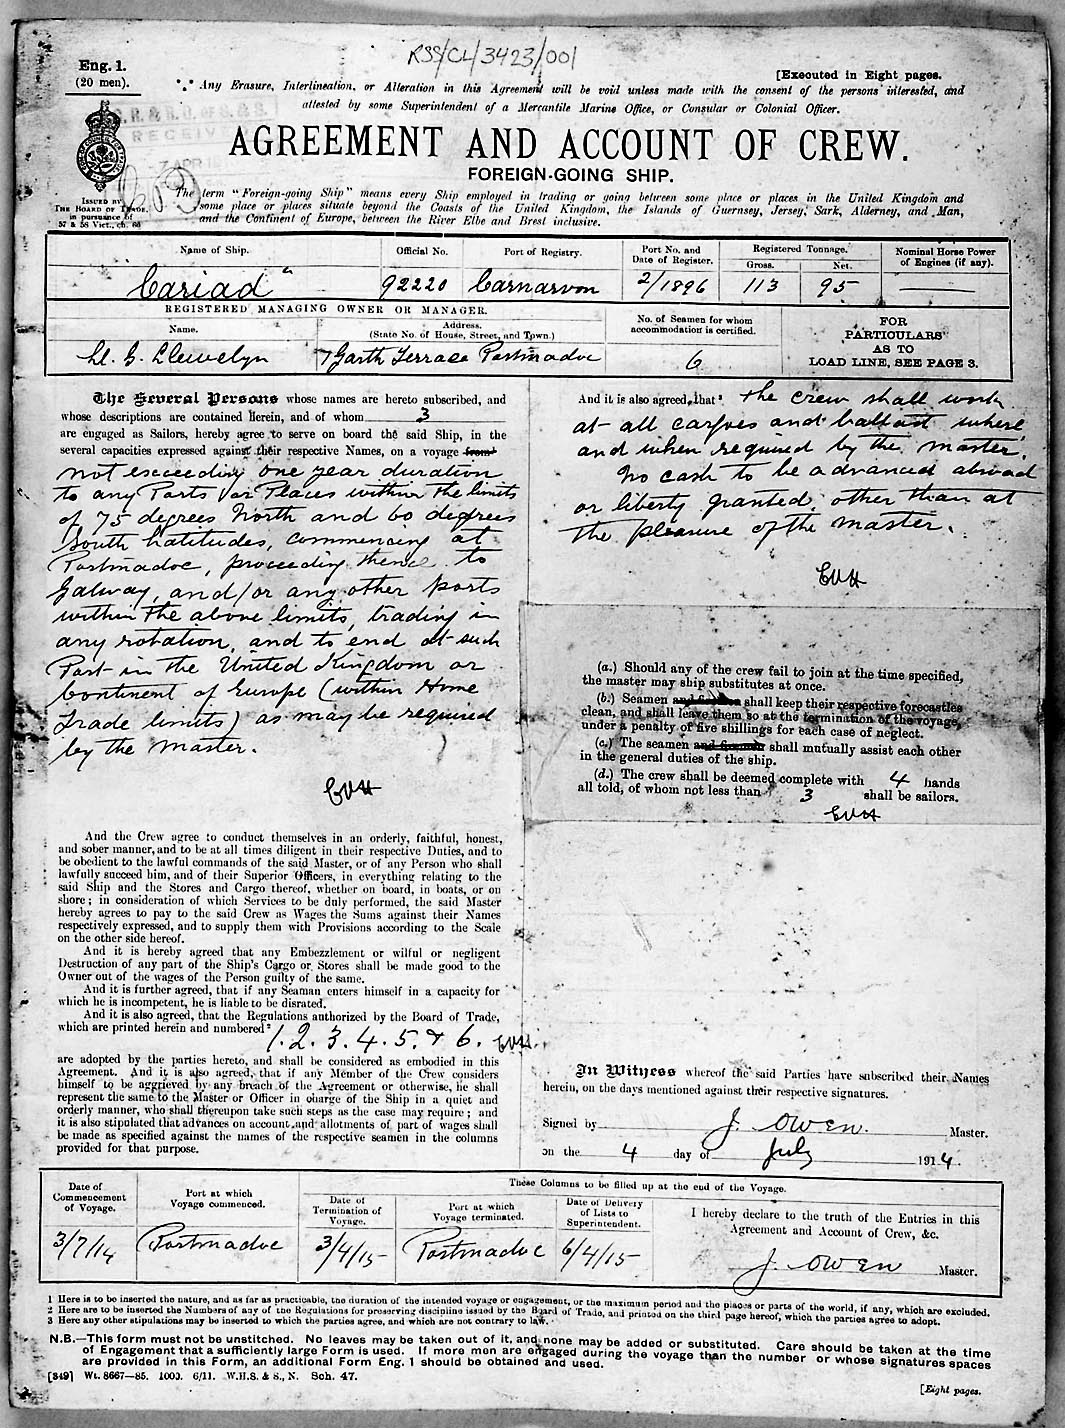 RSS/CL/3423/001
Eng. 1.
(20 men).
[Executed in Eight pages.
Any Erasure, Interlineation, or Alteration in this Agreement will be void unless made with the consent of the persons interested, and
attested by some Superintendent of a Mercantile Marine Office, or Consular or Colonial Officer.
AGREEMENT AND ACCOUNT OF CREW.
FOREIGN-GOING SHIP.
ISSUED BY
THE BOARD OF TRADE.
in pursuance of
57 & 58 Vict., ch. 60
The term "Foreign-going Ship" means every Ship employed in trading or going between some place or places in the United Kingdom and
some place or places situate beyond the Coasts of the United Kingdom, the Islands of Guernsey, Jersey, Sark, Alderney, and Man,
and the Continent of Europe, between the River Elbe and Brest inclusive.
Name of Ship.
Official No.
Port of Registry.
Port No. and
Date of Register.
Registered Tonnage.
Gross.
Net.
Nominal Horse Power
of Engines (if any).
"Cariad"
92220
Carnarvon
2/1896
113
95
REGISTERED MANAGING OWNER OR MANAGER.
Name.
Address.
(State No. of House, Street, and Town.)
No. of Seamen for whom
accommodation is certified.
FOR
PARTICULARS
AS TO
LOAD LINE, SEE PAGE 3.
Llewelyn
7 Garth Terrace Portmadoc
6
The Several Persons whose names are hereto subscribed, and
whose descriptions are contained herein, and of whom 3
are engaged as Sailors, hereby agree to serve on board the said Ship, in the
several capacities expressed against their respective Names, on a voyage from
not exceeding one year duration
to any Ports or Places within the limits
of 75 degrees North and 60 degrees
South Latitudes, commencing at
Portmadoc, proceeding thence to
Galway, and/or any other ports
within the above limits, trading in
any rotation, and to end at such
Port in the United Kingdom or
Continent of Europe (within Home
Trade limits) as may be required
by the Master.
EVH
And the Crew agree to conduct themselves in an orderly, faithful, honest,
and sober manner, and to be at all times diligent in their respective Duties, and to
be obedient to the lawful commands of the said Master, or of any Person who shall
lawfully succeed him, and of their Superior Officers, in everything relating to the
said Ship and the Stores and Cargo thereof, whether on board, in boats, or on
shore; in consideration of which Services to be duly performed, the said Master
hereby agrees to pay to the said Crew as Wages the Sums against their Names
respectively expressed, and to supply them with Provisions according to the Scale
on the other side hereof.
And it is hereby agreed that any Embezzlement or wilful or negligent
Destruction of any part of the Ship's Cargo or Stores shall be made good to the
Owner out of the wages of the Person guilty of the same.
And it is further agreed, that if any Seaman enters himself in a capacity for
which he is incompetent, he is liable to be disrated.
And it is also agreed, that the Regulations authorized by the Board of Trade,
which are printed herein and numbered² 1. 2. 3. 4. 5. & 6. EVH.
are adopted by the parties hereto, and shall be considered as embodied in this
Agreement. And it is also agreed, that if any Member of the Crew considers
himself to be aggrieved by any breach of the Agreement or otherwise, he shall
represent the same to the Master or Officer in charge of the Ship in a quiet and
orderly manner, who shall thereupon take such steps as the case may require; and
it is also stipulated that advances on account and allotments of part of wages shall
be made as specified against the names of the respective seamen in the columns
provided for that purpose.
And it is also agreed, that³ the crew shall work
at all cargoes and ballast where
and when required by the master.
No cash to be advanced abroad
or liberty granted other than at
the pleasure of the master.
EVH
(a.) Should any of the crew fail to join at the time specified,
the master may ship substitutes at once.
(b.) Seamen and firemen shall keep their respective forecastles
clean, and shall leave them so at the termination of the voyage,
under a penalty of five shillings for each case of neglect.
(c.) The seamen and firemen shall mutually assist each other
in the general duties of the ship.
(d.) The crew shall be deemed complete with 4 hands
all told, of whom not less than 3 shall be sailors.
EVH
In Witness whereof the said Parties have subscribed their Names
herein, on the days mentioned against their respective signatures.
Signed by J. Owen. Master.
on the 4 day of July 1914.
Date of
Commencement
of Voyage.
Port at which
Voyage commenced.
These Columns to be filled up at the end of the Voyage.
Date of
Termination of
Voyage.
Port at which
Voyage terminated.
Date of Delivery
of Lists to
Superintendent.
I hereby declare to the truth of the Entries in this
Agreement and Account of Crew, &c.
3/7/14
Portmadoc
3/4/15
Portmadoc
6/4/15
J. Owen Master.
1 Here is to be inserted the nature, and as far as practicable, the duration of the intended voyage or engagement, or the maximum period and the places or parts of the world, if any, which are excluded.
2 Here are to be inserted the Numbers of any of the Regulations for preserving discipline issued by the Board of Trade, and printed on the third page hereof, which the parties agree to adopt.
3 Here any other stipulations may be inserted to which the parties agree, and which are not contrary to law.
N.B.—This form must not be unstitched. No leaves may be taken out of it, and none may be added or substituted. Care should be taken at the time
of Engagement that a sufficiently large Form is used. If more men are engaged during the voyage than the number or whose signatures spaces
are provided in this Form, an additional Form Eng. 1 should be obtained and used.
[849] Wt. 8667—85. 1000. 6/11. W.H.S. & S., N. Sch. 47.
[Eight pages.